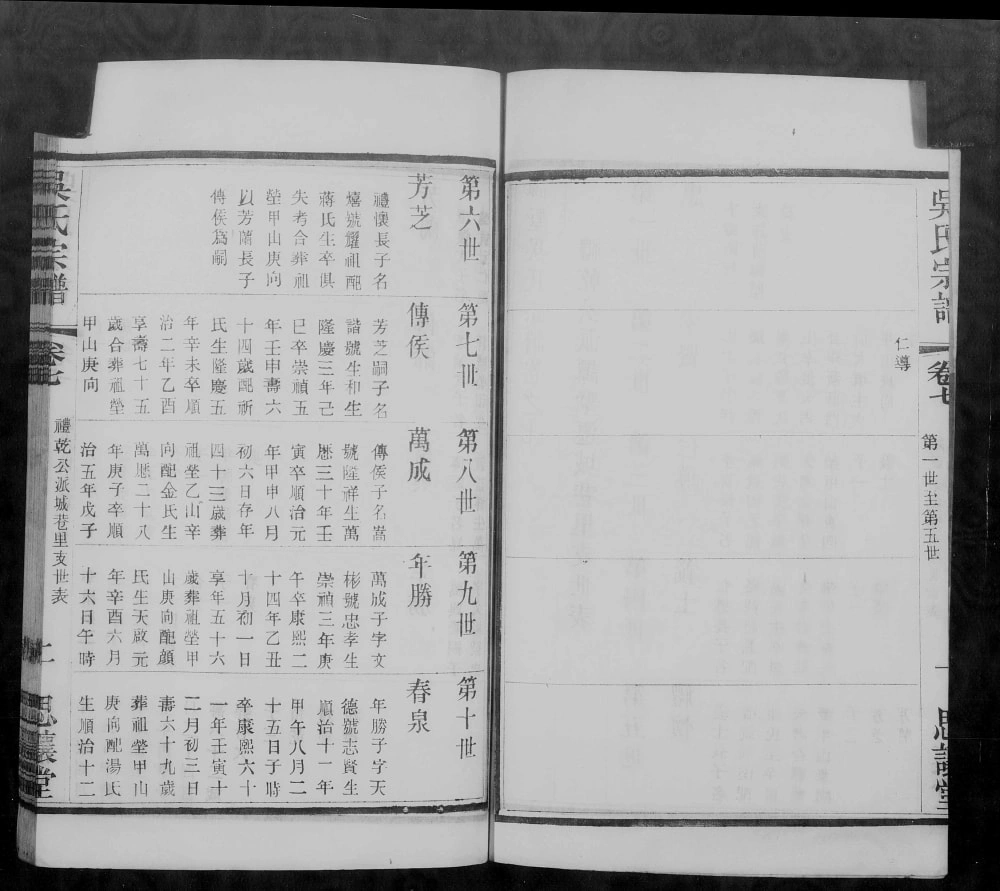 吳氏宗譜
卷七
仁導
第一世至第五世
一
思讓堂
第六世
芳芝
禮懷長子名
熺號耀祖配
蔣氏生卒俱
失考合葬祖
塋甲山庚向
以芳蘭長子
傳侯為嗣
第七世
傳侯
芳芝嗣子名
諧號生和生
隆慶三年己
巳卒崇禎五
年壬申壽六
十四歲配祈
氏生隆慶五
年辛未卒順
治二年乙酉
享壽七十五
歲合葬祖塋
甲山庚向
第八世
萬成
傳侯子名嵩
號隆祥生萬
曆三十年壬
寅卒順治元
年甲申八月
初六日存年
四十三歲葬
祖塋乙山辛
向配金氏生
萬曆二十八
年庚子卒順
治五年戊子
第九世
年勝
萬成子字文
彬號忠孝生
崇禎三年庚
午卒康熙二
十四年乙丑
十月初一日
享年五十六
歲葬祖塋甲
山庚向配顏
氏生天啟元
年辛酉六月
十六日午時
第十世
春泉
年勝子字天
德號志賢生
順治十一年
甲午八月二
十五日子時
卒康熙六十
一年壬寅十
二月初三日
壽六十九歲
葬祖塋甲山
庚向配湯氏
生順治十二
吳氏宗譜
卷七
禮乾公派城巷里支世表
二
思讓堂